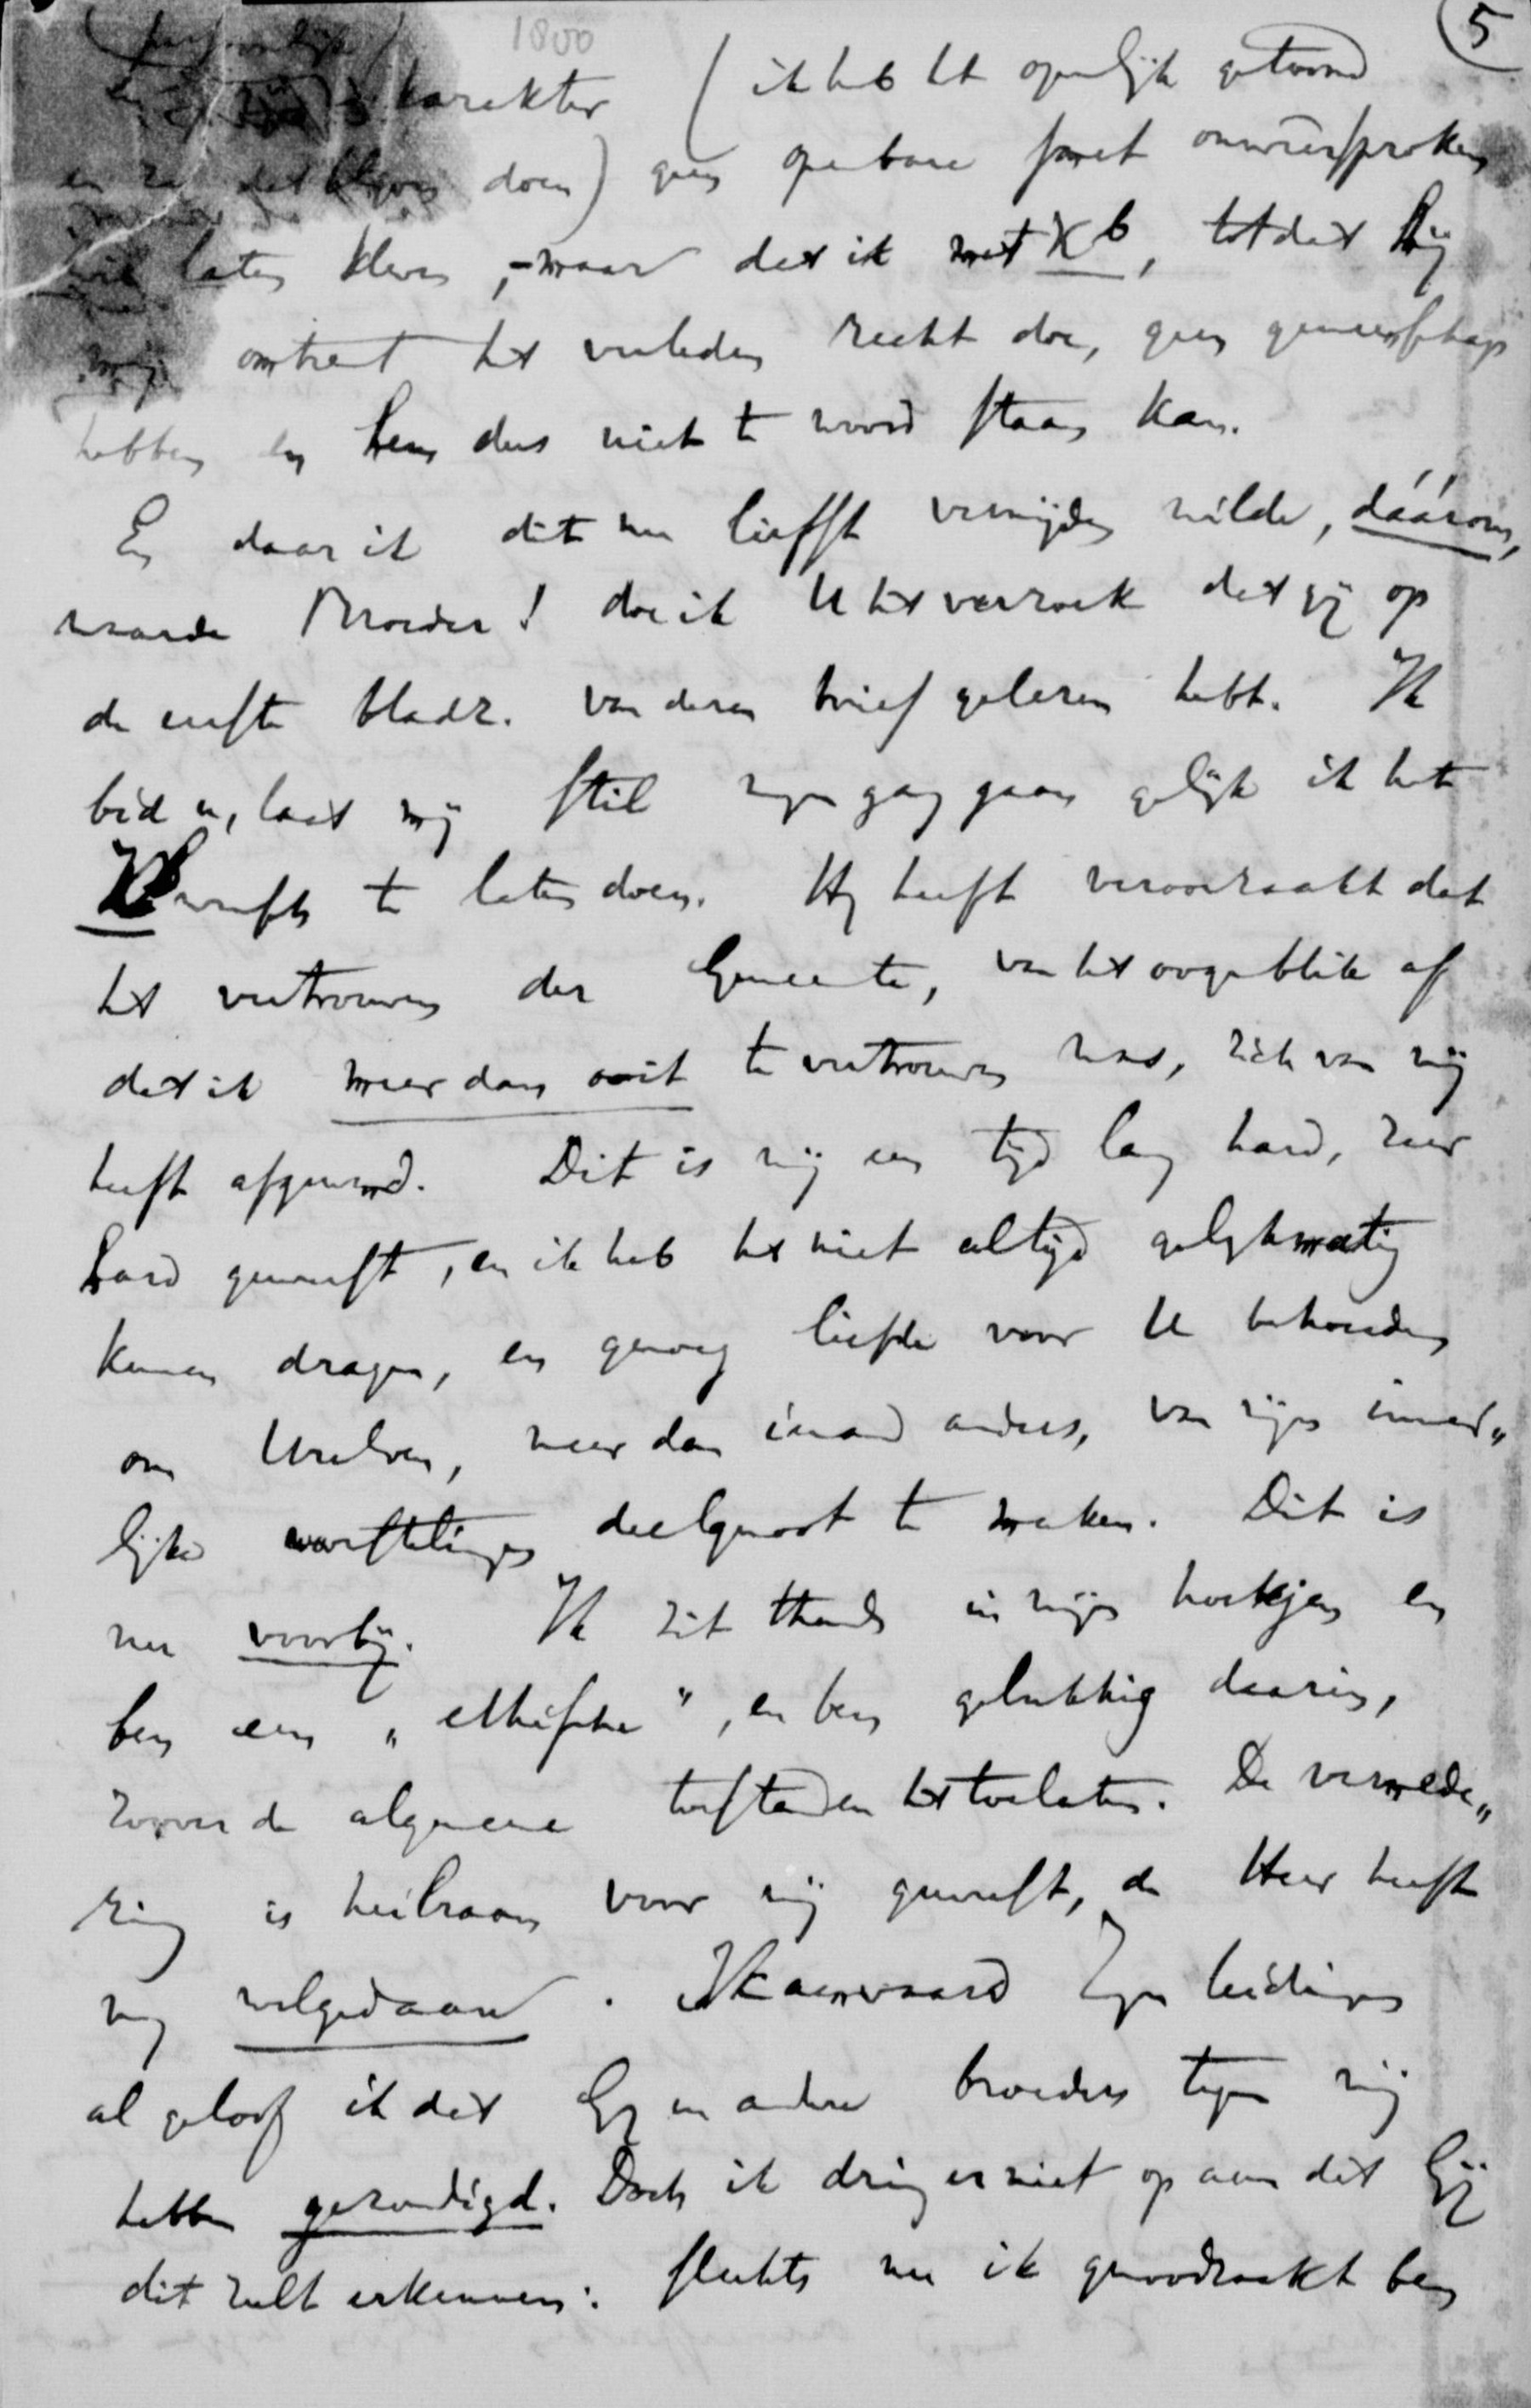 5
1800
persoonlijk
karakter (ik heb dit openlijk getoond
en zal dat blijven doen) geen openbare smet onweersproken
wil laten kleven, - maar dat ik met Kb, totdat hij
mij omtrent het verleden recht doe, geen gemeenschap
hebben en hem dus niet te woord staan kan.
En daar ik dit nu liefst vermijden wilde, dáárom,
waarde Broeder! doe ik U het verzoek dat gij op
de eerste bladz. van dezen brief gelezen hebt. Ik
bid u, laat mij stil mijn gang gaan gelijk ik het
Kb wensch te laten doen. Hij heeft veroorzaakt dat
het vertrouwen der Gemeente, van het oogenblik af
dat ik meer dan ooit te vertrouwen was, zich van mij
heeft afgewend. Dit is mij een tijd lang hard, zeer
hard geweest, en ik heb het niet altijd gelijkmatig
kunnen dragen, en genoeg liefde voor U behouden
om Uzelven, meer dan iemand anders, van mijn inner„
lijke worstelingen deelgenoot te maken. Dit is
nu voorbij. Ik zit thands in mijn hoekjen en
ben een „ethische", en ben gelukkig daarin,
zoover de algemene toestanden het toelaten. De vernede„
ring is heilzaam voor mij geweest, de Heer heeft
mij welgedaan. Ik aanvaard Zijn leidingen
al geloof ik dat Gij en andere broeders tegen mij
hebben gezondigd. Doch ik dring er niet op aan dat Gij
dit zult erkennen: slechts nu ik genoodzaakt ben